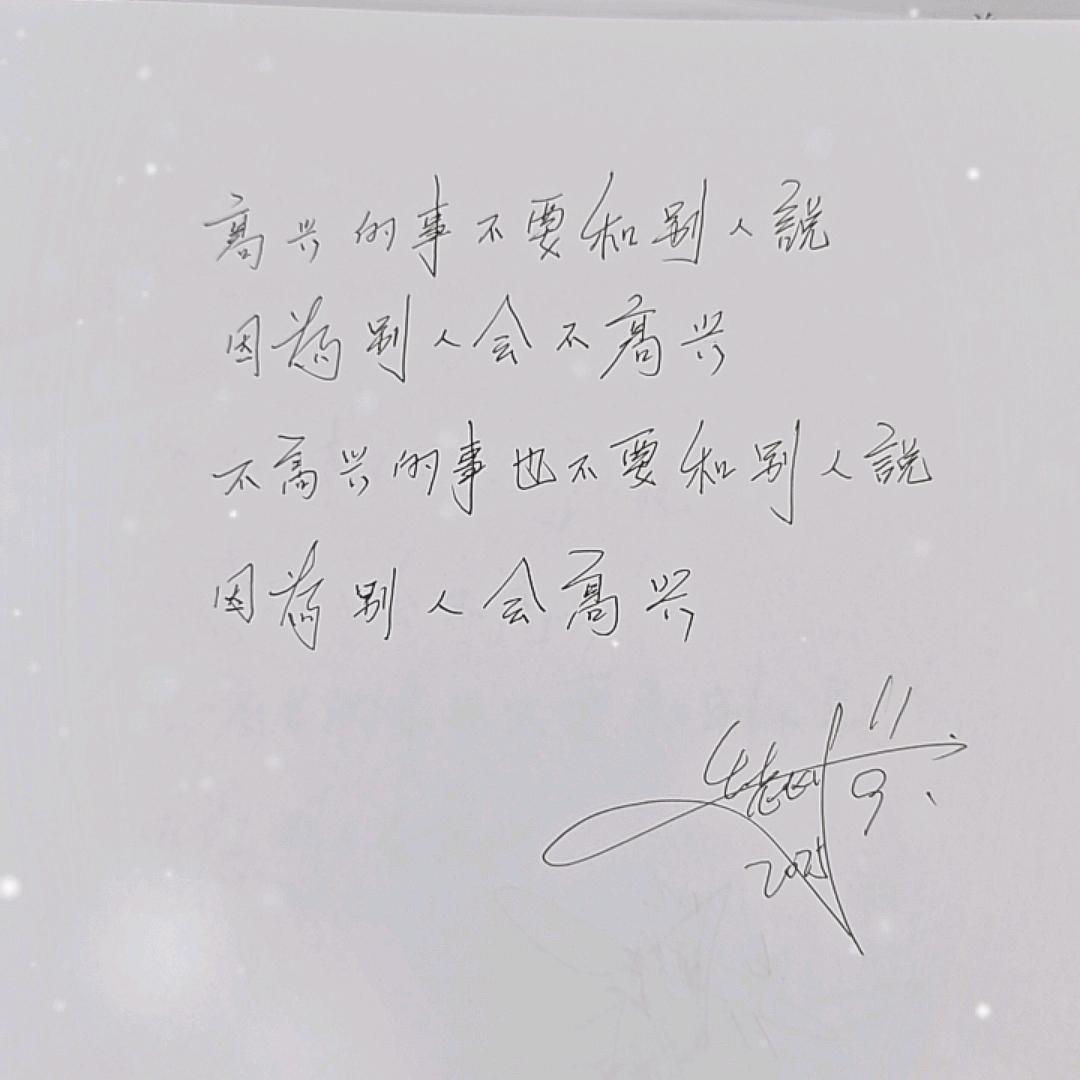 高兴的事不要和别人說
因為别人会不高兴
不高兴的事也不要和别人說
因為别人会高兴
11
9
2025